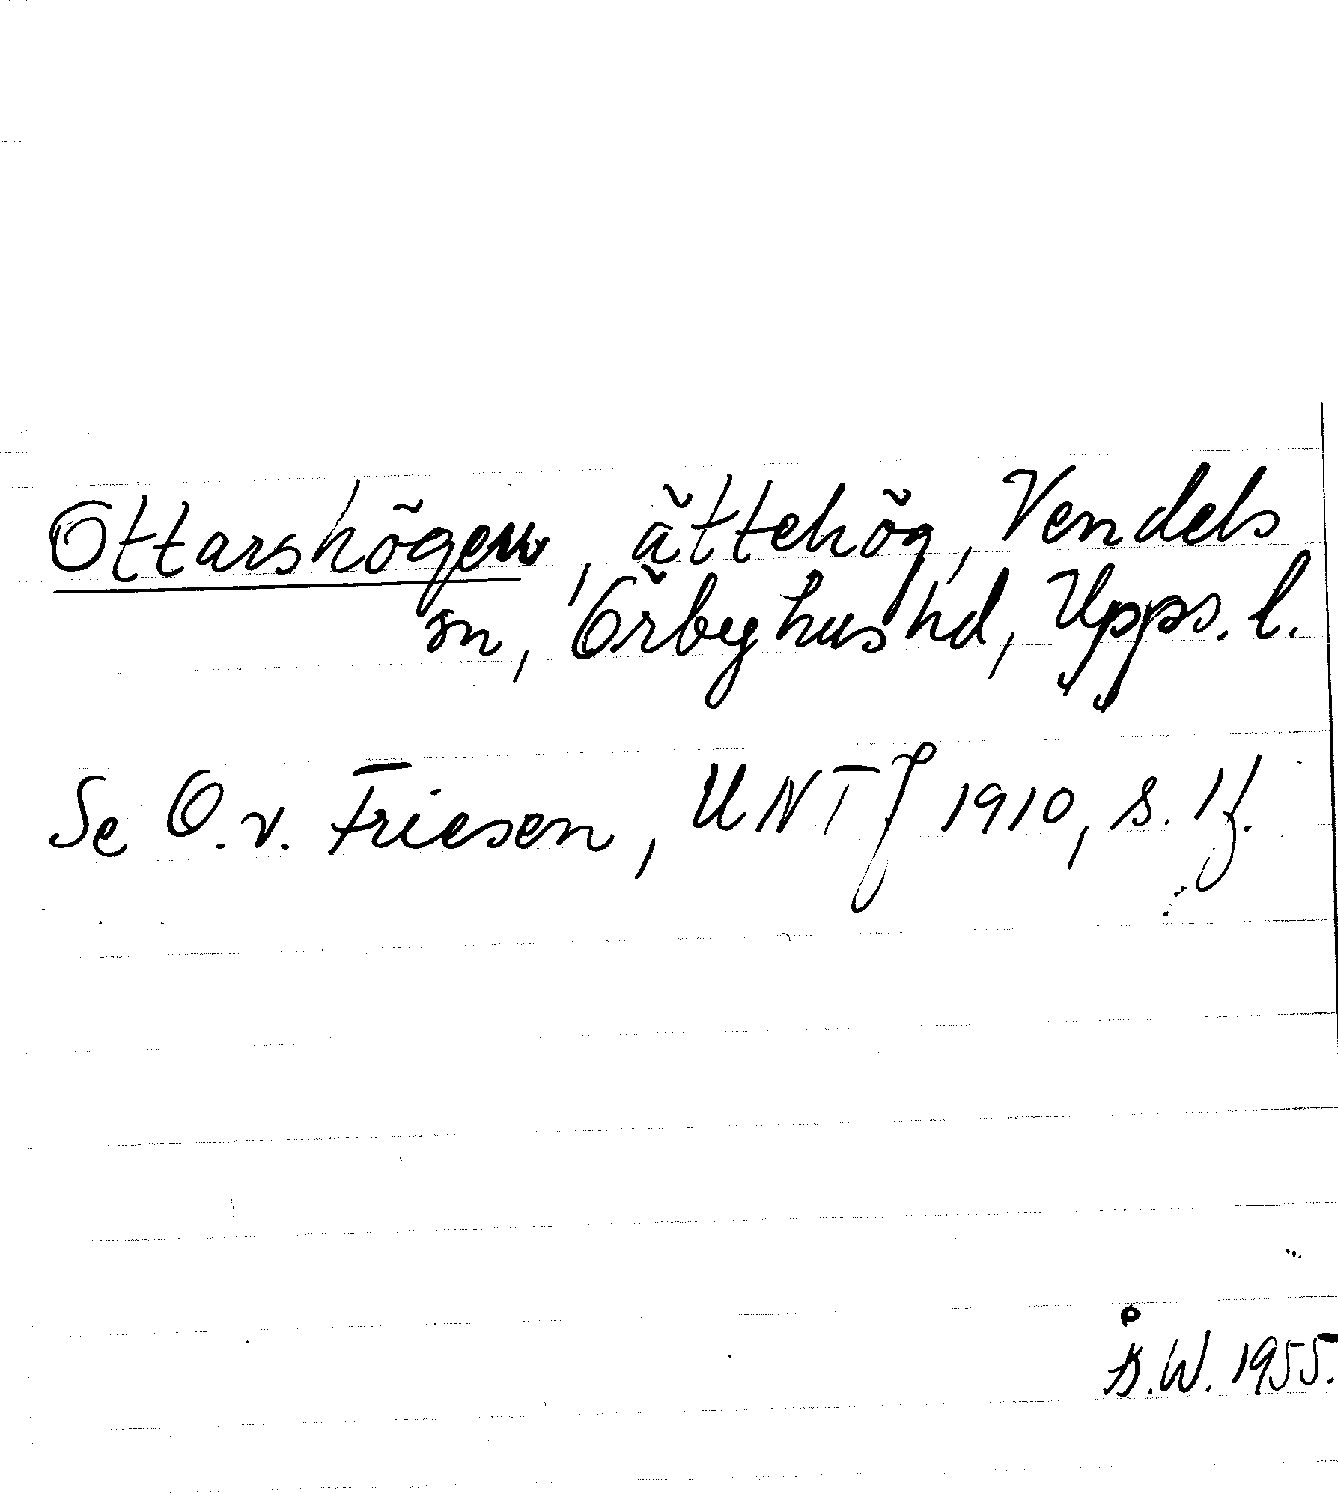 Ottarshögen, ättehög, Vendels
sn, Örbyhus hd, Upps. l.
Se O. v. Friesen, UNT 9/9 1910, s. 1 f.
Å.W. 1955.